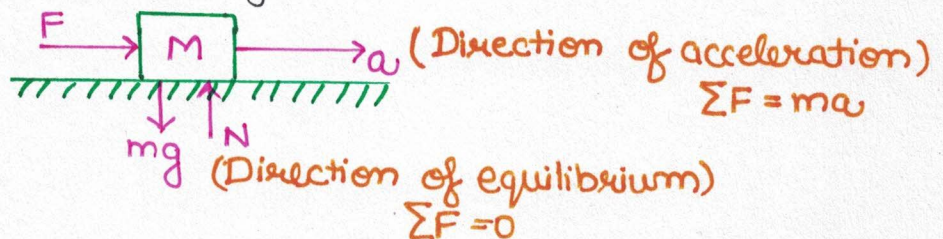 F
M
a (Direction of acceleration)
ΣF = ma
mg
N
(Direction of equilibrium)
ΣF = 0